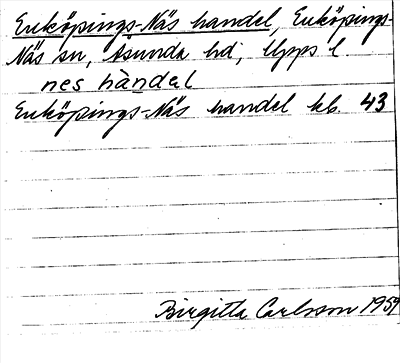 Enköpings-Näs handel, Enköpings-
Näs sn, Åsunda hd, Upps l
nes hàndel
Enköpings-Näs handel kb. 43
Birgitta Carlsson 1959